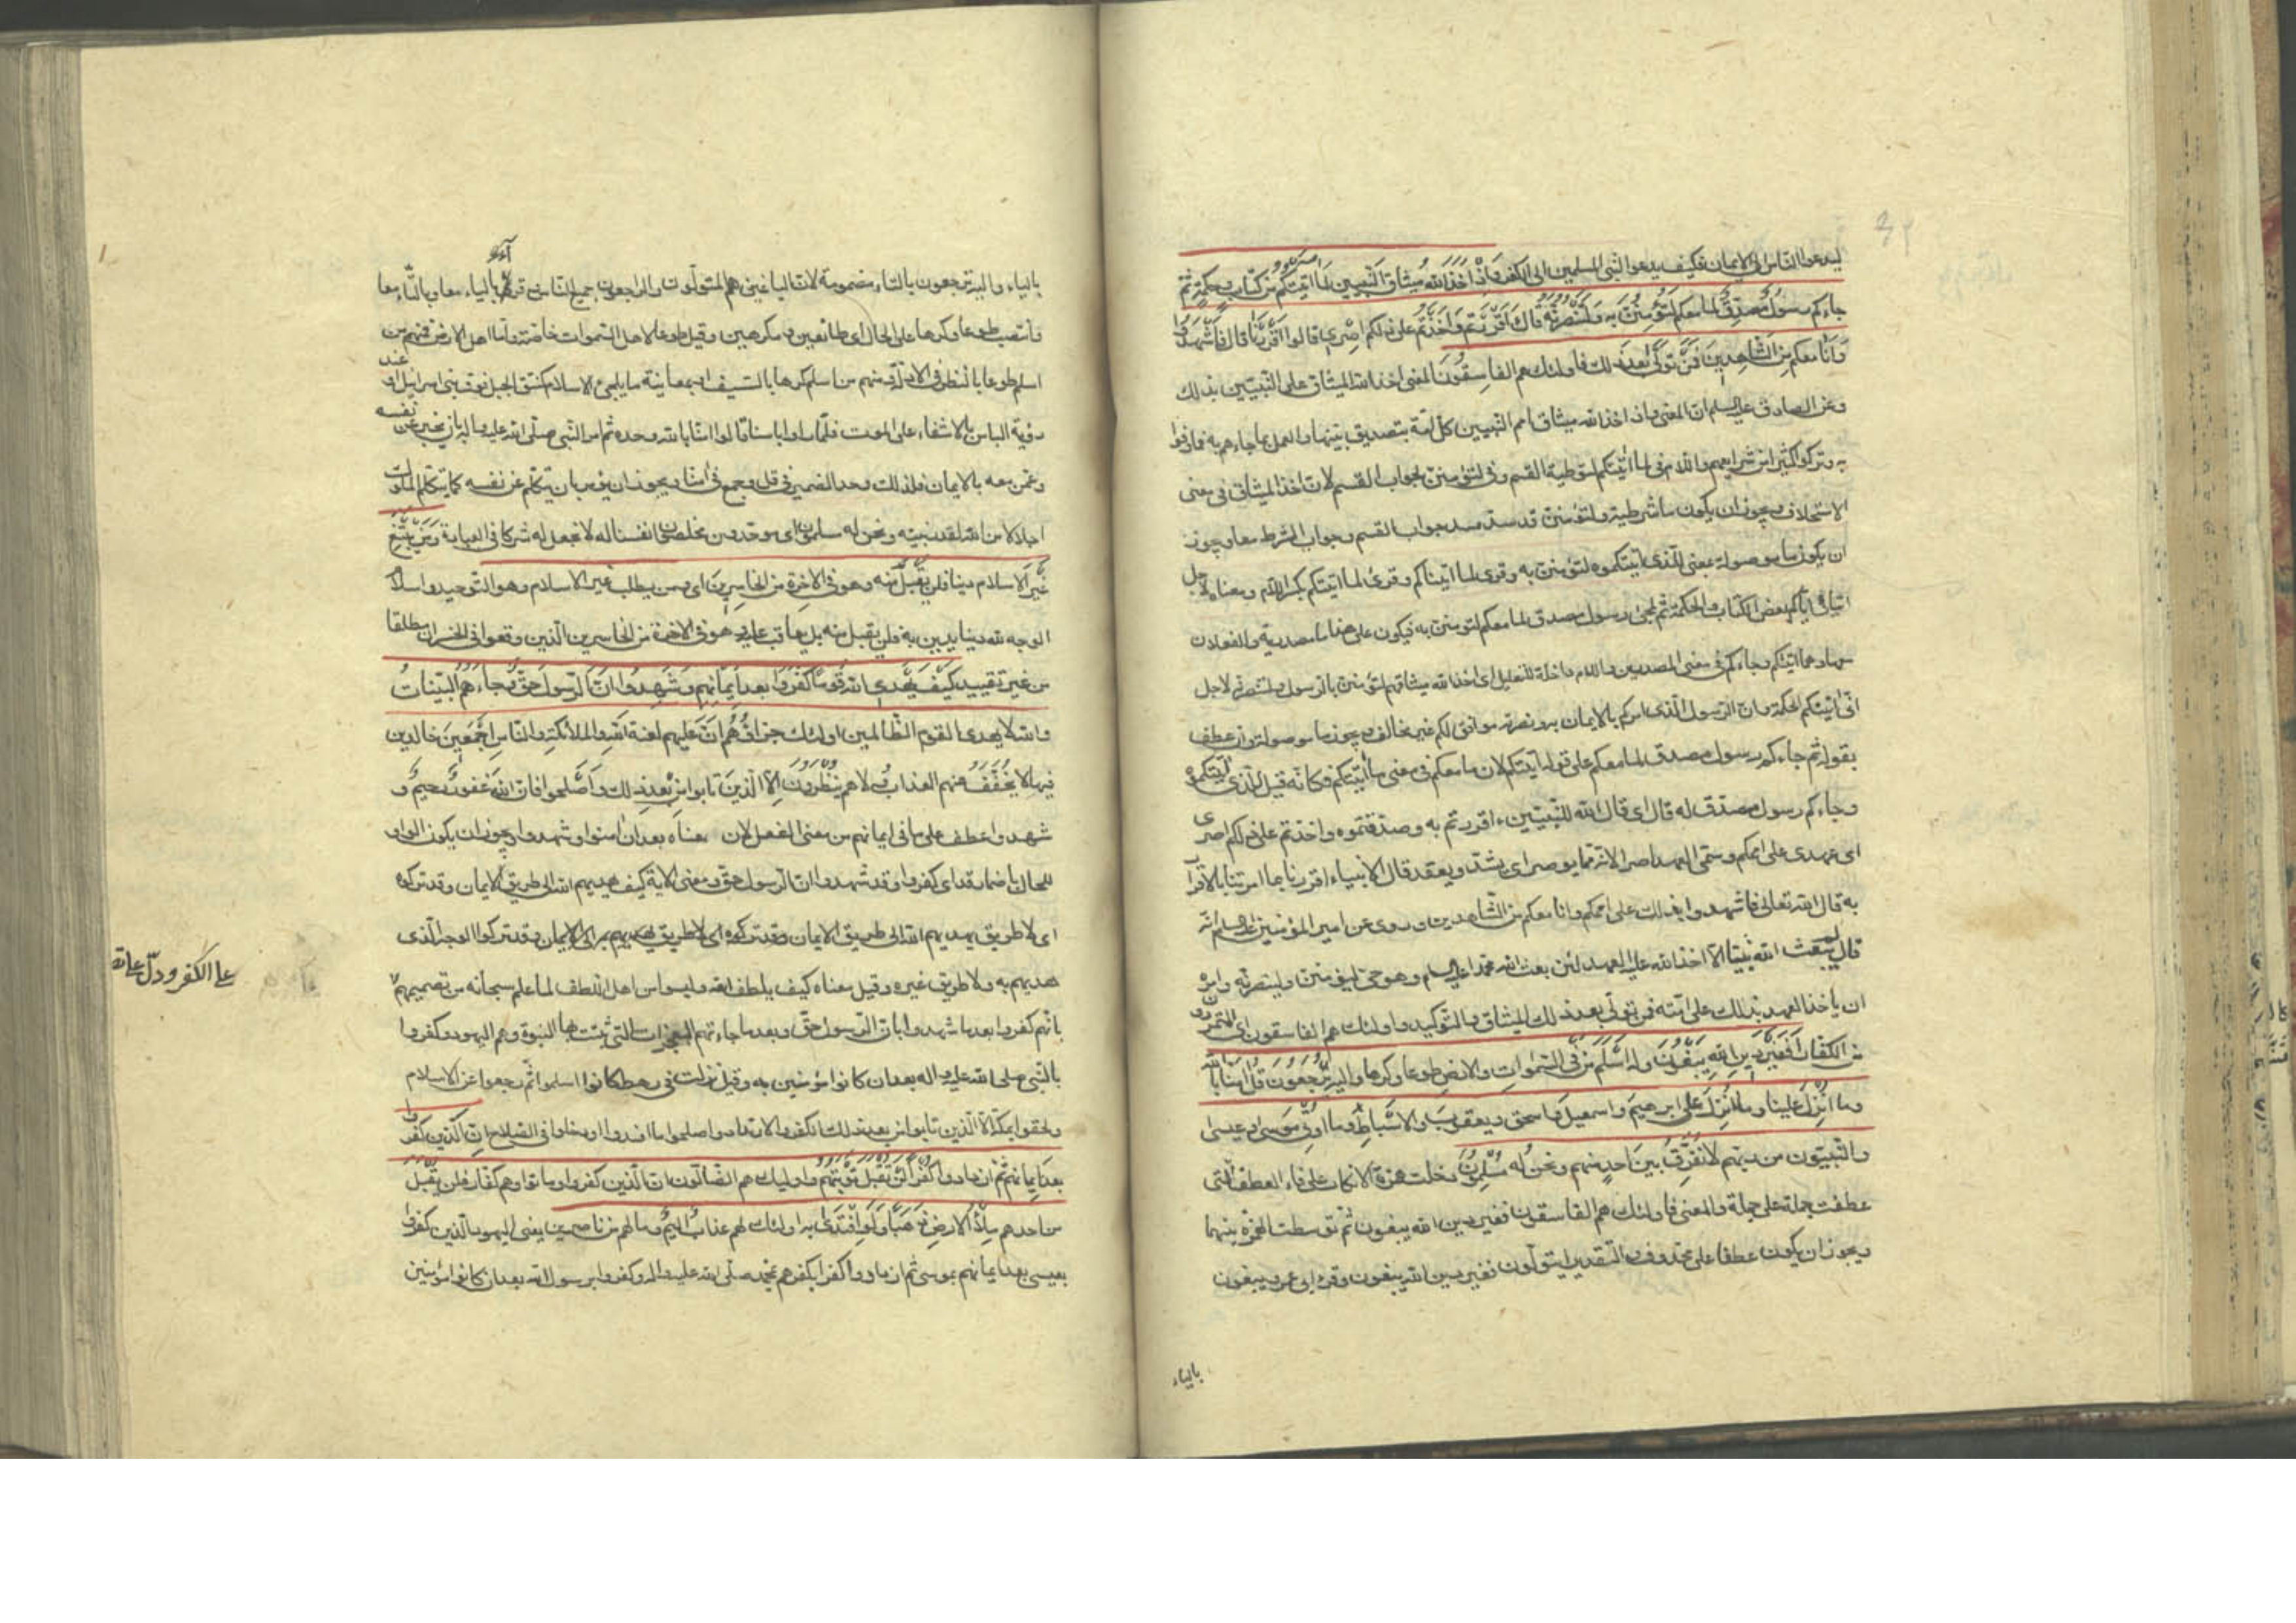 ليدعوا الناس الى الايمان فكيف يدعوا النبى المسلمين الى الكفر وَاِذْ اَخَذَ اللهُ مِيثاقَ النَّبِيين لَمَا اتَيْتكُم مِنْ كتابٍ وحِكمَةٍ ثُمَّ
جاءكم رسولٌ مُصَدِّقٌ لما معكم لَتُؤْمِنُنَّ بِهِ وَلَتَنْصُرُنَّهُ قال ءَاَقْرَرْتُم وَاَخَذْتُم على ذلكم اِصْرى قالوا اَقْرَرْنا قال فَاشْهَدُوا
وَاَنَا معكم مِنَ الشّاهِدينَ فَمَنْ تَوَلّى بعد ذلك فاولئك هم الفاسِقُونَ المعنى اخذ الله الميثاق على النبيّين بذلك
وعن الصادق عليه السلم ان المعنى واذ اخذ الله ميثاق امم النبيين كلّ امّة بتصديق نبيّها والعمل بما جاءهم به فما وفوا
به وتركوا كثيرا من شرايعهم واللام فى لما اتيتكم لتوطية القسم وفى لتؤمننّ لجواب القسم لان اخذ الميثاق فى معنى
الاستحلاف ويجوز ان يكون ما شرطية ولتؤمننّ قد سدّ مسدّ جواب القسم وجواب الشرط معا ويجوز
ان يكون ما موصولة بمعنى للّذى اتيتكموه لتؤمننّ به وقرى لما اتيناكم وقرئ لما اتيتكم بكسر اللام ومعناه لاجل
ايتائى ايّاكم بعض الكتاب والحكمة ثم لمجئ رسول مصدق لما معكم لتؤمننّ به فيكون على هذا ما مصدرية والفعلان
معها وهما اتيتكم وجاءكم فى معنى المصدرين واللام داخلة للتعليل اى اخذ الله ميثاقهم لتؤمننّ بالرسول ولتنصرنّه لاجل
انّى اتيتكم الحكمة وانّ الرسول الّذى امركم بالايمان به ونصرته موافق لكم غير مخالف ويجوز ما موصولة وان عطف
بقوله ثم جاءكم رسول مصدق لما معكم على قوله اتيتكم لان ما معكم فى معنى ما اتيتكم فكانّه قيل للّذى اتيتكموه
وجاءكم رسول مصدّق له قال اى قال الله للنّبيّين ءاقررتم به وصدّقتموه واخذتم على ذلكم اصرى
اى عهدى على اممكم وسمّى العهد اصرا لانّه ممّا يوصر اى يشدّ ويعقد قال الانبياء اقررنا بما امرتنا بالاقرار
به قال الله تعالى فاشهدوا بذلك على اممكم وانا معكم من الشّاهدين وروى عن امير المؤمنين عليه السلم انّه
قال لم يبعث الله نبيّا الّا اخذ الله عليه العهد لئن بعث الله محمّدا عليه السلم وهو حىّ ليؤمننّ به ولينصرنّه وامره
ان ياخذ العهد بذلك على امّته فمن تولّى بعد ذلك الميثاق والتّوكيد واولئك هم الفاسقون اى المتمرّدون
من الكفار اَفَغَيْرَ دينِ اللهِ يَبْغُونَ وله اَسْلَمَ مَنْ فِى السَّمواتِ والارض طوعا وكرها واليه تُرْجَعُونَ قُلْ امَنّا بالله
وما اُنْزِلَ علينا وما اُنْزِلَ على ابرهيمَ واسمعيل واسحق ويعقوبَ والاَسْباطِ وما اُوتِىَ مُوسى وعيسى
والنَّبِيّون من ربهم لا نُفَرِّقُ بينَ احدٍ منهم ونحن له مُسْلِمُونَ دخلت همزة الانكار على فاء العطف الّتى
عطفت جملة على جملة والمعنى فاولئك هم الفاسقون فغير دين الله يبغون ثم توسّطت الهمزة بينهما
ويجوز ان يكون عطفا على محذوف والتّقدير ايتولّون فغير دين الله يبغون وقرء ابى عمرو يبغون
بالياء
بالياء واليه ترجعون بالتاء مضمومة لان الباغين هم المتولّون والراجعون جميع الناس وقرئ بالياء معا وبالتّاء معا
وانتصب طوعا وكرها على الحال اى طائعين ومكرهين وقيل طوعا لاهل السّموات خاصّة وامّا اهل الارض فمنهم من
اسلم طوعا بالنظر فى الادلّة ومنهم من اسلم كرها بالسّيف او بمعاينة ما يلجئ الى الاسلام كنتق الجبل فوق بنى اسرائيل او عند
رؤية الباس بالاشفاء على الموت فلمّا راوا باسنا قالوا امنّا بالله وحده ثم امر النبى صلّى الله عليه واله بان يخبر عن نفسه
وعمّن معه بالايمان فلذلك وحد الضمير فى قل وجمع فى امنّا ويجوز ان يؤمر بان يتكلّم عن نفسه كما يتكلم الملوك
اجلالا من الله لقدر نبيّه ونحن له مسلمون اى موحّدون مخلصون انفسنا له لا نجعل له شركا فى العبادة وَمَنْ يَبْتَغِ
غَيْرَ الاسلام دينا فلن يُقْبَلَ مِنه وهو فى الاخِرَةِ مِنَ الخاسِرينَ اى ومن يطلب غير الاسلام وهو التوحيد واسلام
الوجه لله دينا يدين به فلن يقبل منه بل يعاقب عليه وهو فى الاخرة من الخاسرين الّذين وقعوا فى الخسران مطلقا
من غير تقييد كَيْفَ يَهْدِى اللهُ قَوْمًا كَفَرُوا بعد ايمانِهِم وَشَهِدُوا انَّ الرَّسولَ حَقٌّ وجاءَهُمُ البَيِّناتُ
والله لا يهدى القوم الظّالمين اولئك جزاؤُهُم اَنَّ عليهم لعنة الله والملائكة والناسِ اَجْمَعينَ خالدين
فيها لا يُخَفَّفُ عنهم العذاب ولا هم يُنْظَرُونَ اِلّا الّذينَ تابوا مِنْ بَعْدِ ذلك وَاَصْلَحوا فانّ اللهَ غفورٌ رحيمٌ و
شهدوا عطف على ما فى ايمانهم من معنى الفعل لان معناه بعد ان امنوا وشهدوا ويجوز ان يكون الواو
للحال باضمار قد اى كفروا وقد شهدوا ان الرسول حق ومعنى الاية كيف يهديهم الله الى طريق الايمان وقد تركوه
اى لا طريق يهديهم الله الى طريق الايمان وقد تركوه اى لا طريق يهديهم به الى الايمان وقد تركوا الوجه الّذى
هديهم به ولا طريق غيره وقيل معناه كيف يلطف الله وليسوا من اهل اللطف لما علم سبحانه من تصميمهم
على الكفر ودلّ على انه
بانّهم كفروا بعد ما شهدوا بان الرّسول حقّ وبعد ما جاءتهم المعجزات التى يثبت بها النبوة وهم اليهود وكفروا
بالنّبى صلى الله عليه واله بعد ان كانوا مؤمنين به وقيل نزلت فى رهط كانوا اسلموا ثم رجعوا عن الاسلام
ولحقوا بمكّة الّا الّذين تابوا من بعد ذلك الكفر والارتداد واصلحوا ما افسدوا او دخلوا فى الصّلاح اِنّ الّذين كفروا
بعد اِيمانِهِم ثُمَّ ازدادوا كُفْرًا لَنْ تُقْبَلَ تَوْبَتُهُمْ واوليك هم الضالّون انّ الّذين كفروا وماتوا وهم كفّار فلن يُقْبَلَ
من احدهم مِلْءُ الارض ذَهَبًا وَلَوِ افْتَدى به اولئك لهم عذابٌ اليمٌ وما لهم من ناصرين يعنى اليهود الّذين كفروا
بعيسى بعد ايمانهم بموسى ثم ازدادوا كفرا بكفرهم بمحمّد صلّى الله عليه واله وكفروا برسول الله بعد ان كانوا مؤمنين